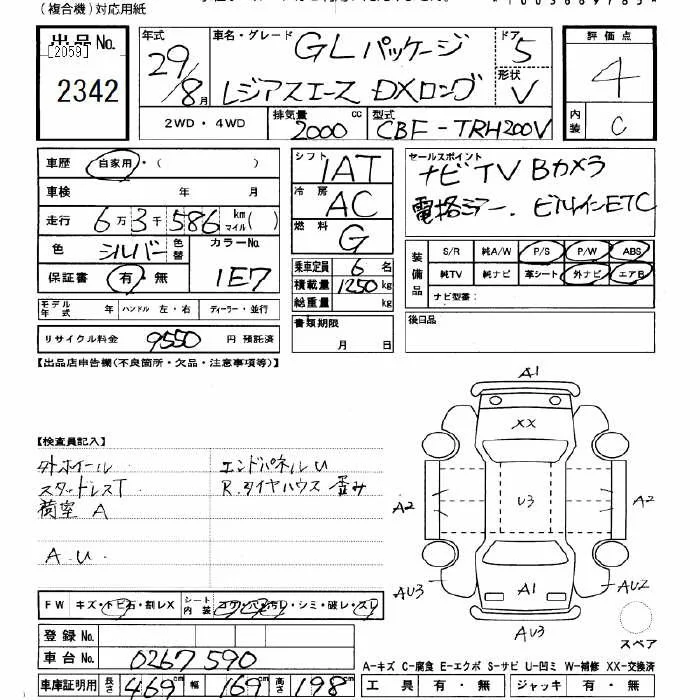 (複合機)対応用紙
出品No.
[2059]
2342
年式
29/8月
車名・グレード
GLパッケージ
レジアスエース DXロング
ドア
5
形状
V
評価点
4
内装
C
2WD・4WD
排気量
2000cc
型式
CBF-TRH200V
車歴 自家用・( )
車検 年 月
走行 6万3千586 km マイル( )
色 シルバー 色替 カラーNo.
保証書 有・無 1E7
シフト 1AT
冷房 AC
燃料 G
乗車定員 6名
積載量 1250kg
総重量 kg
書類期限
月 日
セールスポイント
ナビTV Bカメラ
電格ミラー. ビルトインETC
装備品
S/R 純A/W P/S P/W ABS
純TV 純ナビ 革シート 外ナビ エアB
ナビ型番:
後日品
モデル年式 年 ハンドル 左・右 ディーラー・並行
リサイクル料金 9550 円 預託済
【出品店申告欄(不良箇所・欠品・注意事項等)】
【検査員記入】
外ホイール エンドパネルU
スタッドレスT R.タイヤハウス 歪み
荷室 A
A.U.
A1
XX
U3
A2
A2
A1
AU3
AU2
AU3
スペア
FW キズ・トビ石・割レX シート内装 コゲ・穴・汚レ・シミ・破レ・スレ
登録No.
車台No. 0267590
車庫証明用 長さ 469cm 幅 169cm 高さ 198cm
A-キズ C-腐食 E-エクボ S-サビ U-凹ミ W-補修 XX-交換済
工具 有・無 ジャッキ 有・無